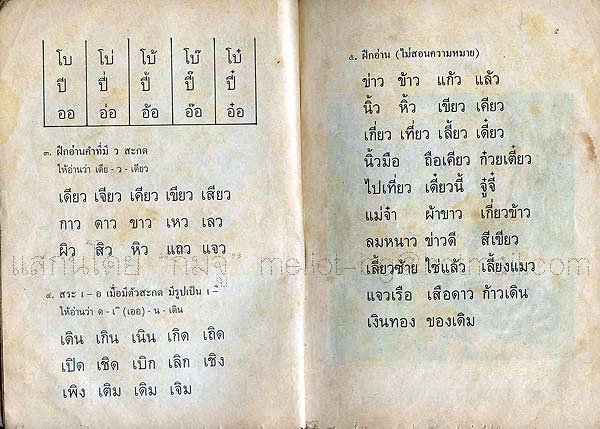 โบ โบ่ โบ้ โบ๊ โบ๋
ปี ปี่ ปี้ ปี๊ ปี๋
ออ อ่อ อ้อ อ๊อ อ๋อ
๓. ฝึกอ่านคำที่มี ว สะกด
ให้อ่านว่า เดีย - ว - เดียว
เดียว เจียว เคียว เขียว เสียว
กาว ดาว ขาว เหว เลว
ผิว สิว หิว แถว แจว
๔. สระ เ - อ เมื่อมีตัวสะกด มีรูปเป็น เ -ิ
ให้อ่านว่า ด - เ -ิ (เออ) - น - เดิน
เดิน เกิน เนิน เกิด เถิด
เปิด เชิด เบิก เลิก เชิง
เพิง เติม เดิม เจิม
๕
๕. ฝึกอ่าน (ไม่สอนความหมาย)
ข่าว ข้าว แก้ว แล้ว
นิ้ว หิ้ว เขียว เคียว
เกี่ยว เที่ยว เลี้ยว เดี๋ยว
นิ้วมือ ถือเคียว ก๋วยเตี๋ยว
ไปเที่ยว เดี๋ยวนี้ จู๋จี๋
แม่จ๋า ผ้าขาว เกี่ยวข้าว
ลมหนาว ข่าวดี สีเขียว
เลี้ยวซ้าย ใช่แล้ว เลี้ยงแมว
แจวเรือ เสือดาว ก้าวเดิน
เงินทอง ของเดิม
แสกนโดย